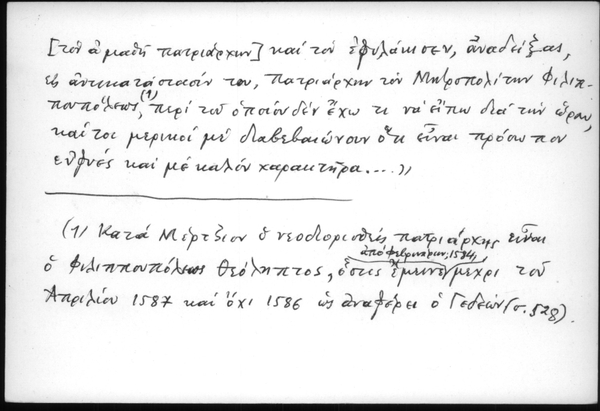 [τὸν ἀμαθῆ πατριάρχην] καὶ τὸν ἐφυλάκισεν, ἀναδείξας,
εἰς ἀντικατάστασίν του, πατριάρχην τὸν Μητροπολίτην Φιλιπ-
πουπόλεως,(1) περὶ τοῦ ὁποίου δὲν ἔχω τι νὰ εἴπω διὰ τὴν ὥραν,
καίτοι μερικοί μὲ διαβεβαιώνουν ὅτι εἶναι πρόσωπον
εὐφυές καὶ μὲ καλόν χαρακτῆρα....»
(1) Κατά Μέρτζιον ὁ νεοδιορισθείς πατριάρχης εἶναι
ὁ Φιλιππουπόλεως Θεόληπτος, ὅστις ἔμεινε ἀπό Φεβρουάριον, 1584, μέχρι τοῦ
Ἀπριλίου 1587 καί ὄχι 1586 ὡς ἀναφέρει ὁ Γεδεών (σ. 528).